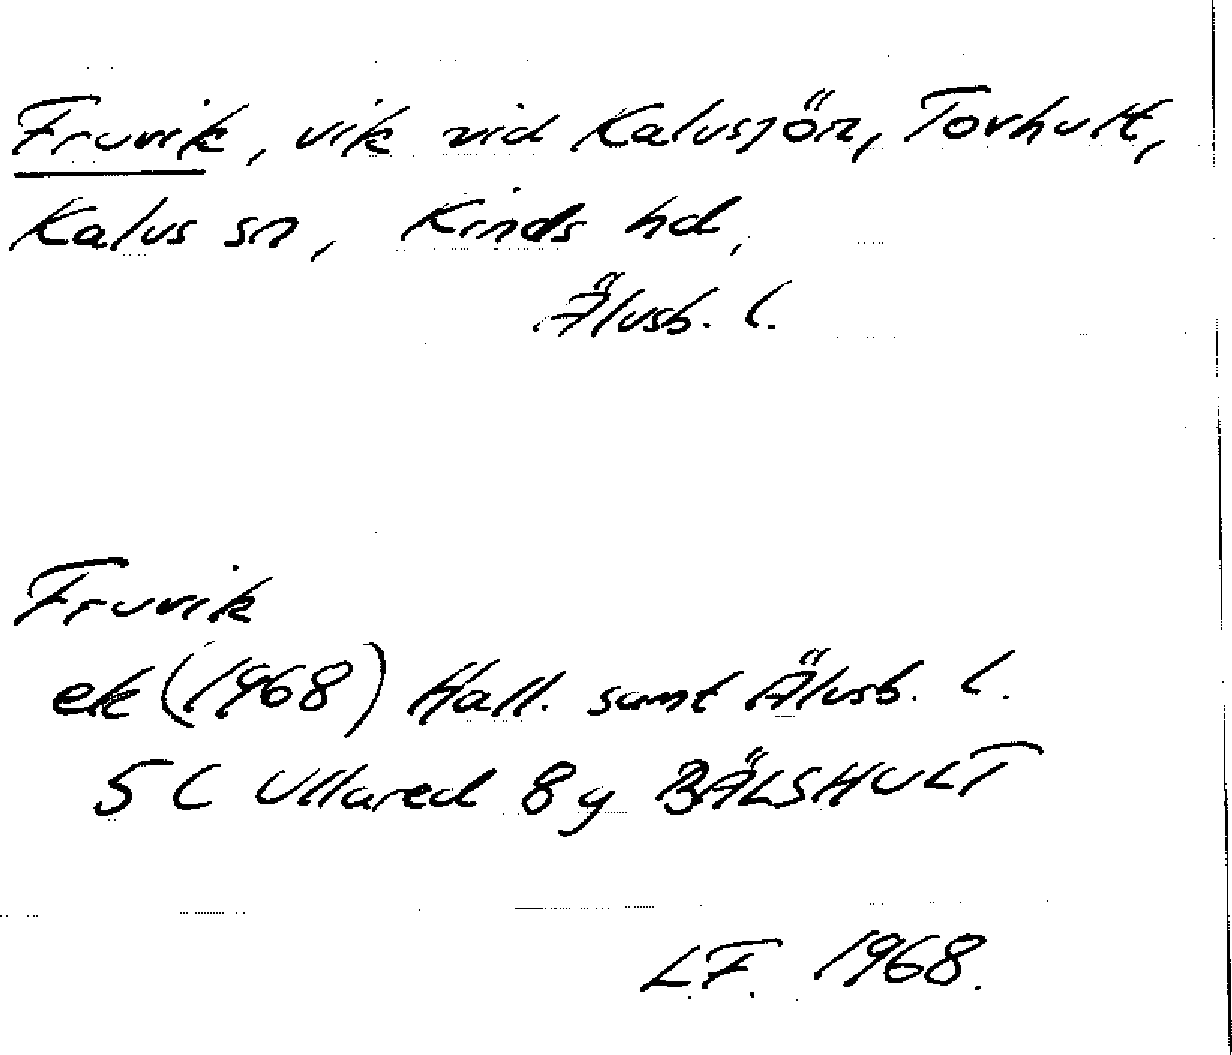 Fruvik, vik vid Kalvsjön, Torhult,
Kalvs sn, Kinds hd,
Älvsb. l.
Fruvik
ek (1968) Hall. samt Älvsb. l.
5 C Ullared 8 g BÄLSHULT
L.F. 1968.